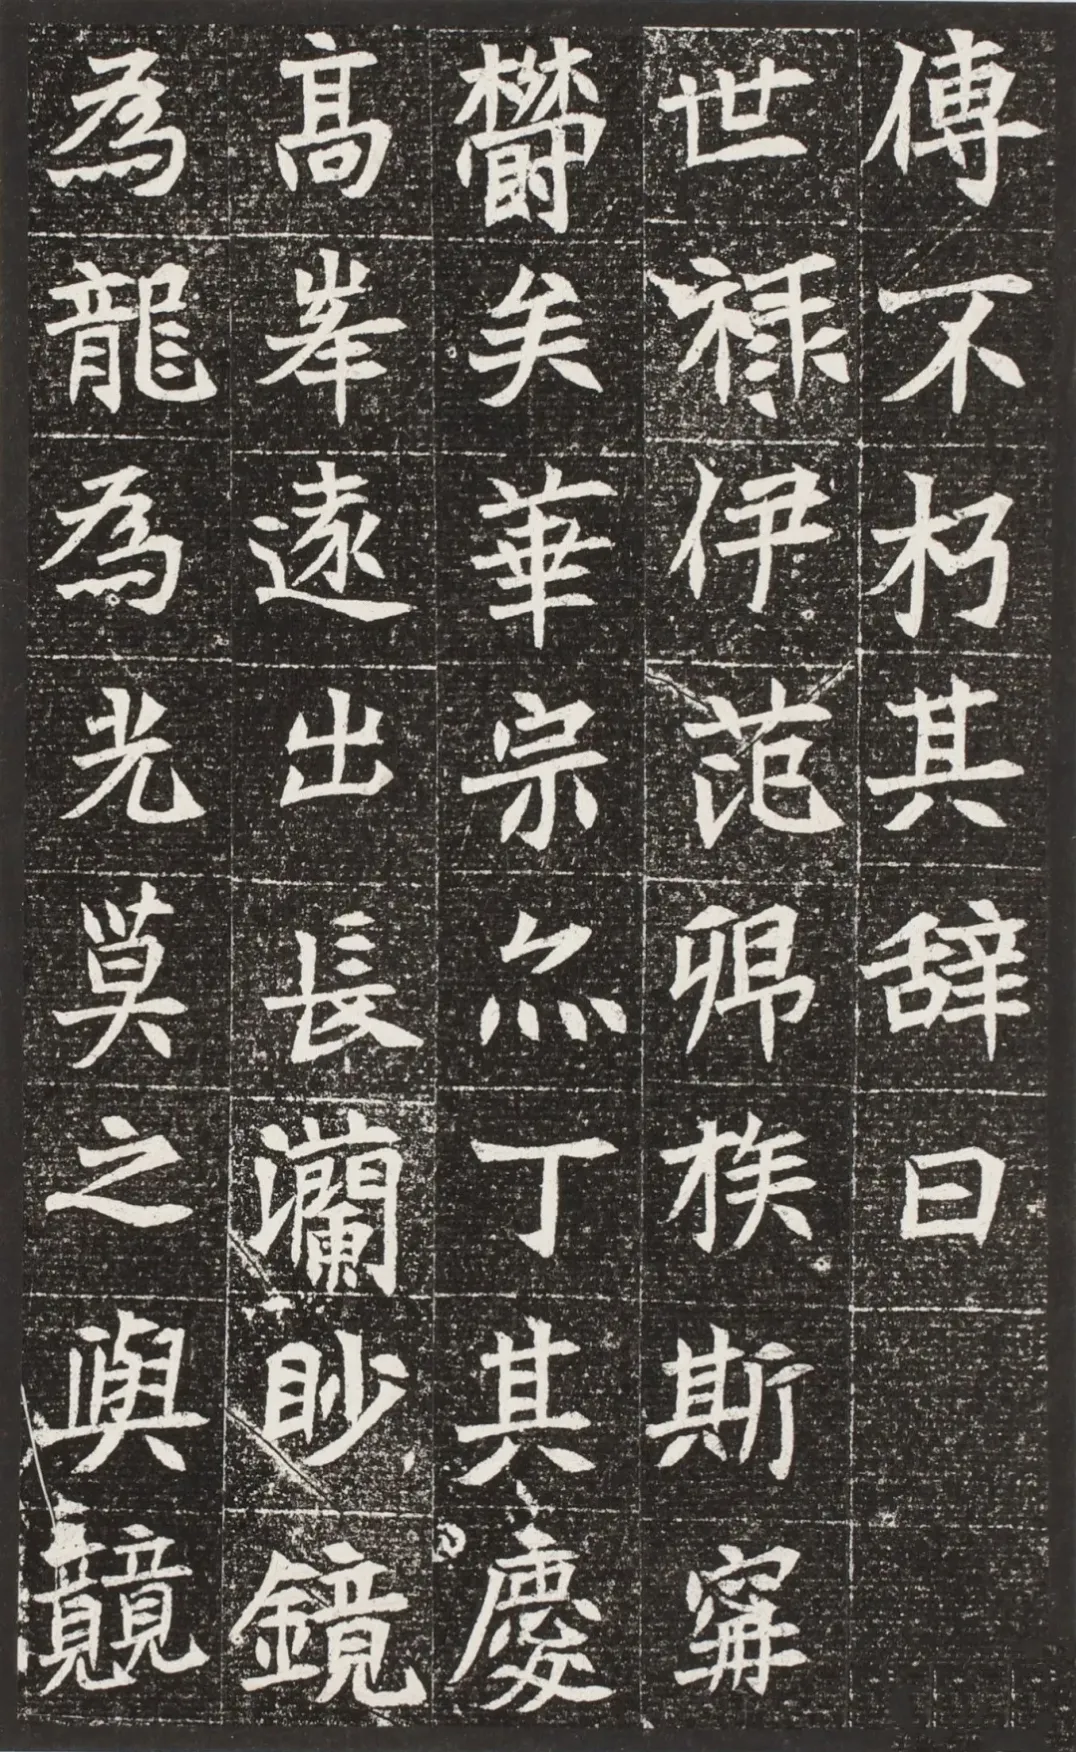 傳不朽其辞曰
世禄伊范卿族斯甯
鬱矣華宗亦丁其慶
高峯遠出長瀾眇鏡
為龍為光莫之與競